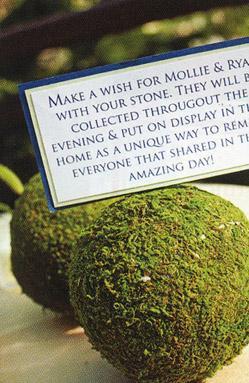 MAKE A WISH FOR MOLLIE & RYA
WITH YOUR STONE. THEY WILL B
COLLECTED THROUGOUT THE
EVENING & PUT ON DISPLAY IN T
HOME AS A UNIQUE WAY TO REM
EVERYONE THAT SHARED IN T
AMAZING DAY!